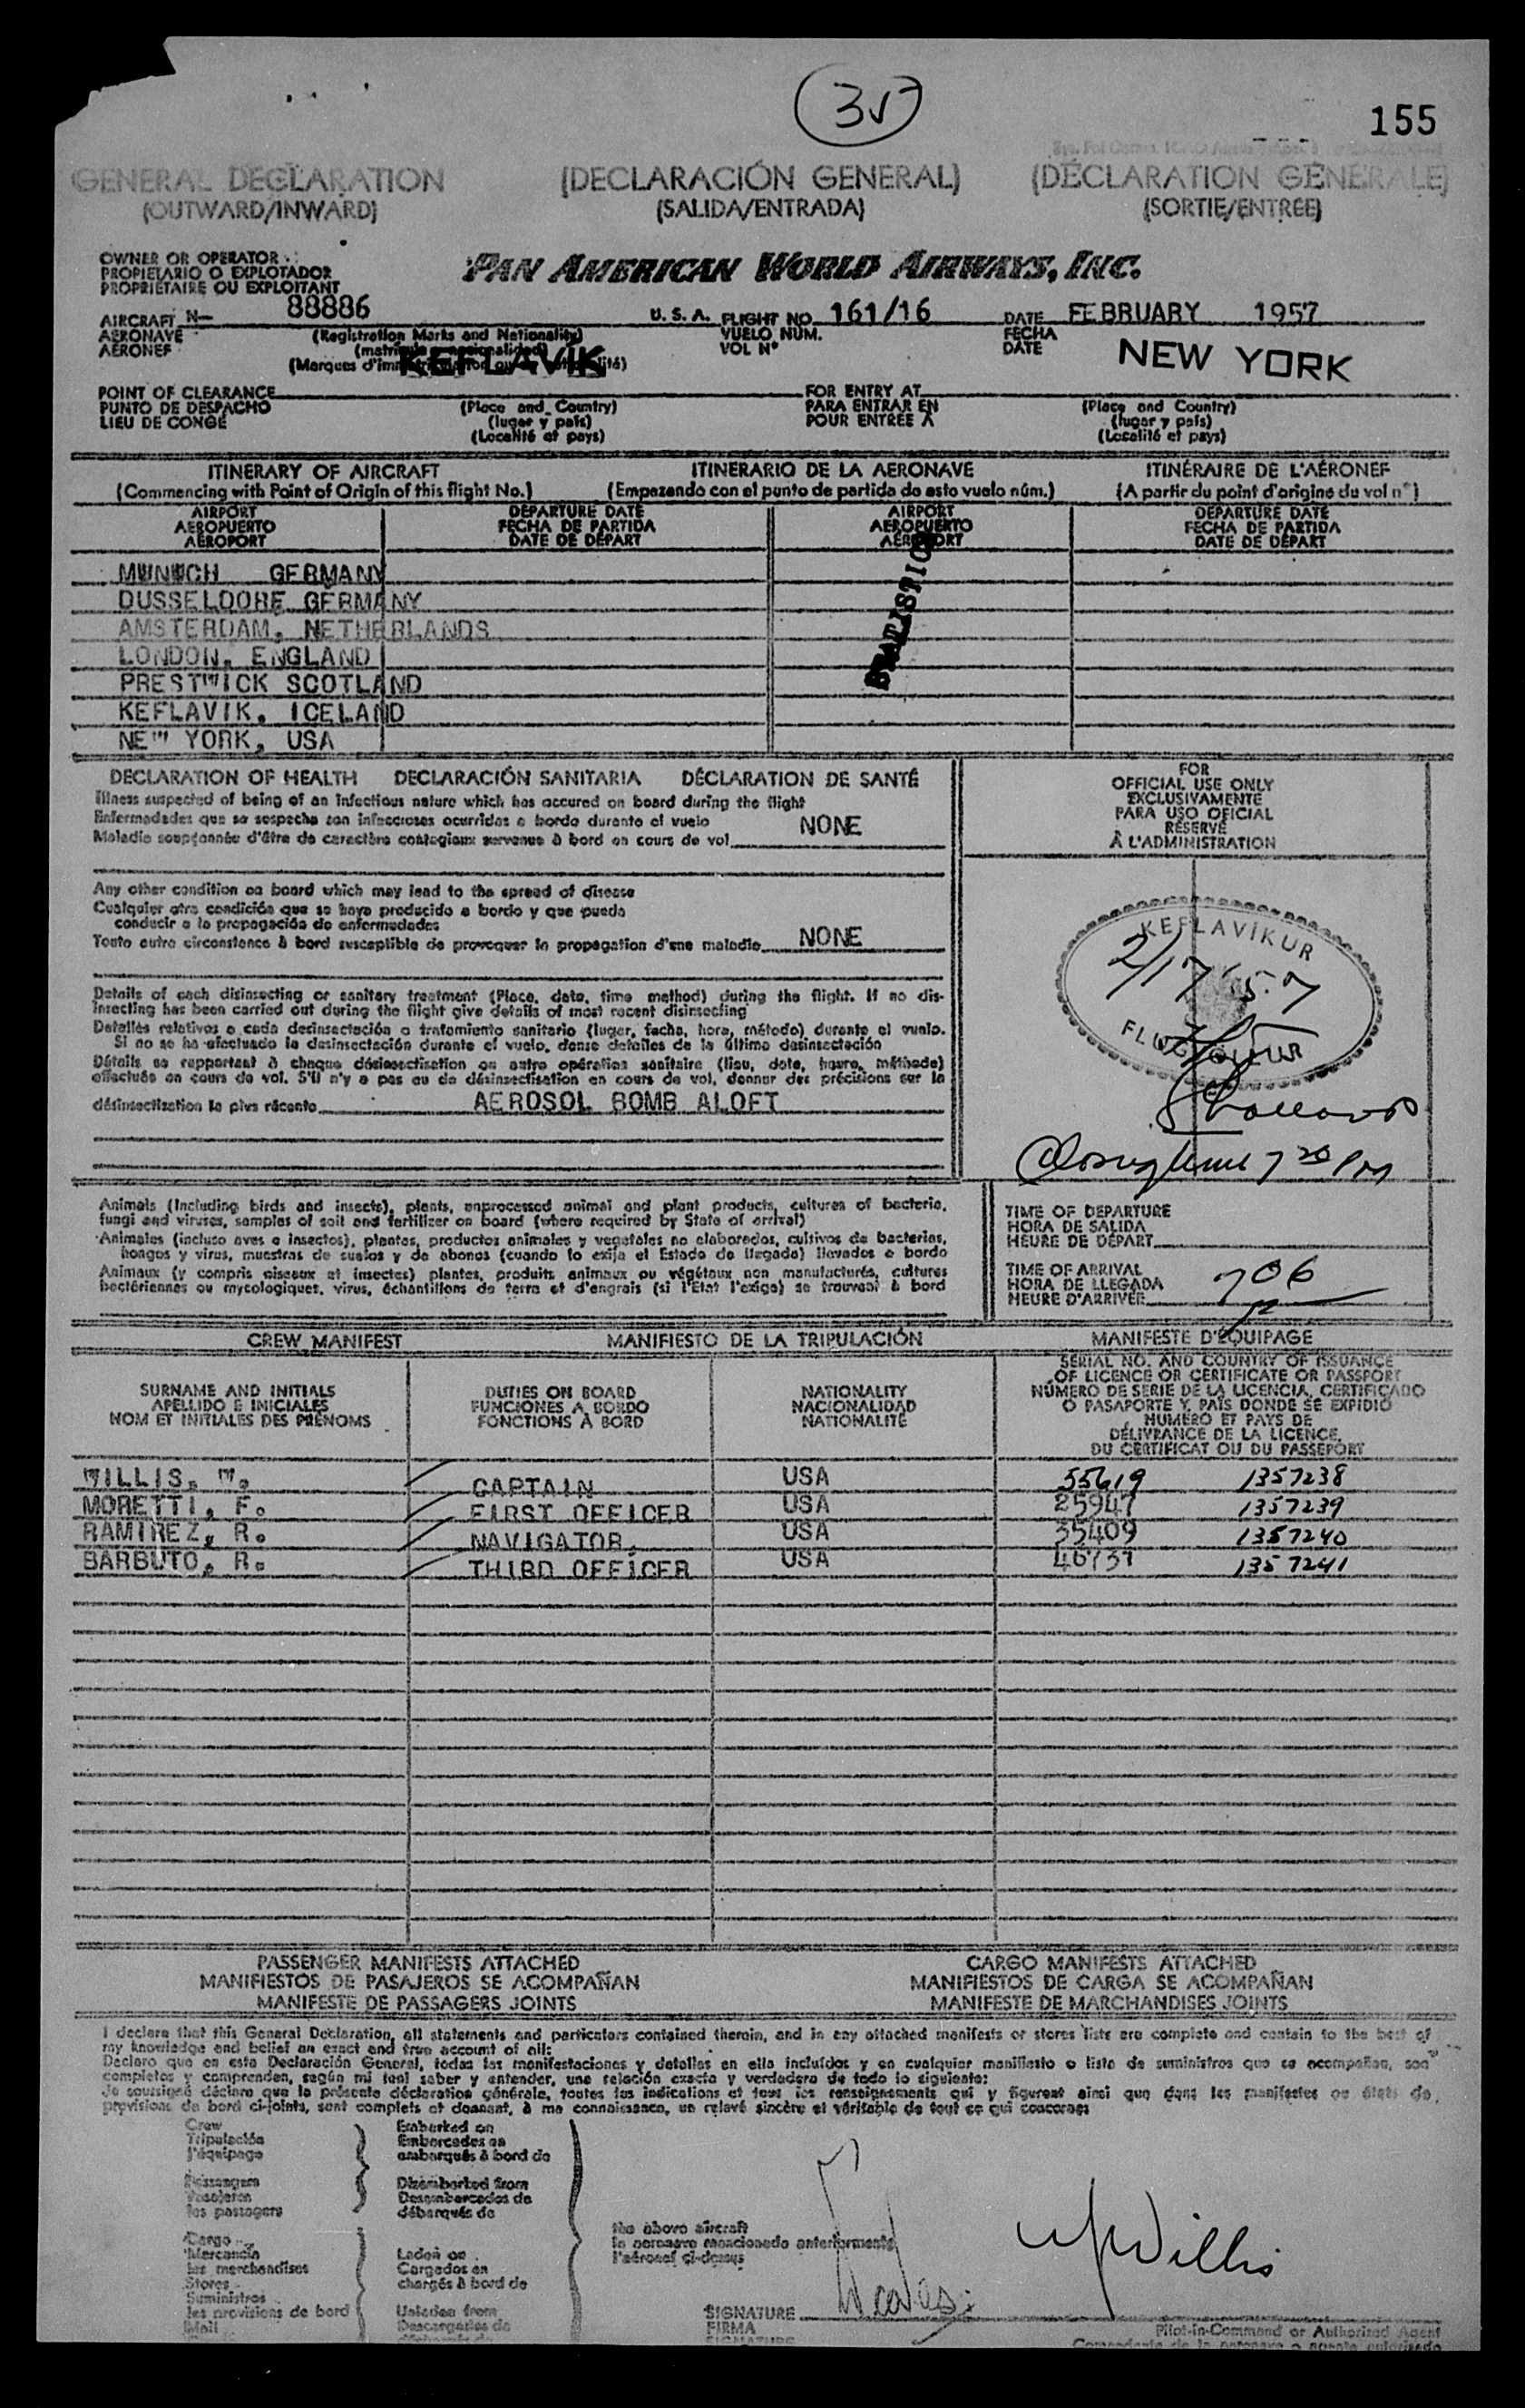 155
GENERAL DECLARATION (DECLARACIÓN GENERAL) (DÉCLARATION GÉNÉRALE)
(OUTWARD/INWARD) (SALIDA/ENTRADA) (SORTIE/ENTRÉE)
OWNER OR OPERATOR
PROPIETARIO O EXPLOTADOR
PROPRIÉTAIRE OU EXPLOITANT
PAN AMERICAN WORLD AIRWAYS, INC.
AIRCRAFT N- 88886 U. S. A. FLIGHT NO. 161/16 DATE FEBRUARY 1957
AERONAVE (Registration Marks and Nationality) VUELO NÚM. FECHA
AÉRONEF VOL Nº DATE
KEFLAVIK NEW YORK
POINT OF CLEARANCE FOR ENTRY AT
PUNTO DE DESPACHO (Place and Country) PARA ENTRAR EN (Place and Country)
LIEU DE CONGÉ (lugar y país) POUR ENTRÉE À (lugar y país)
(Localité et pays) (Localité et pays)
ITINERARY OF AIRCRAFT ITINERARIO DE LA AERONAVE ITINÉRAIRE DE L'AÉRONEF
(Commencing with Point of Origin of this flight No.) (Empezando con el punto de partida de esto vuelo núm.) (A partir du point d'origine du vol nº)
AIRPORT DEPARTURE DATE AIRPORT DEPARTURE DATE
AEROPUERTO FECHA DE PARTIDA AEROPUERTO FECHA DE PARTIDA
AÉROPORT DATE DE DÉPART AÉROPORT DATE DE DÉPART
MUNUCH GERMANY
DUSSELDORF GERMANY
AMSTERDAM, NETHERLANDS
LONDON, ENGLAND
PRESTWICK SCOTLAND
KEFLAVIK, ICELAND
NEW YORK, USA
DECLARATION OF HEALTH DECLARACIÓN SANITARIA DÉCLARATION DE SANTÉ
Illness suspected of being of an infectious nature which has occured on board during the flight
Enfermedades que se sospecha son infecciosas ocurridas a bordo durante el vuelo
Maladie soupçonnée d'être de caractère contagieux survenue à bord en cours de vol NONE
Any other condition on board which may lead to the spread of disease
Cualquier otra condición que se haya producido a bordo y que pueda
conducir a la propagación de enfermedades
Toute autre circonstance à bord susceptible de provoquer la propagation d'une maladie NONE
Details of each disinsecting or sanitary treatment (Place, date, time method) during the flight. If no dis-
insecting has been carried out during the flight give details of most recent disinsecting
Detalles relativos a cada desinsectación o tratamiento sanitario (lugar, fecha, hora, método) durante el vuelo.
Si no se ha efectuado la desinsectación durante el vuelo, dense detalles de la última desinsectación
Détails se rapportant à chaque désinsectisation ou autre opération sanitaire (lieu, date, heure, méthode)
effectuée en cours de vol. S'il n'y a pas eu de désinsectisation en cours de vol, donner des précisions sur la
désinsectisation la plus récente AEROSOL BOMB ALOFT
FOR
OFFICIAL USE ONLY
EXCLUSIVAMENTE
PARA USO OFICIAL
RÉSERVÉ
À L'ADMINISTRATION
KEFLAVÍKUR
2/17/57
Animals (Including birds and insects), plants, unprocessed animal and plant products, cultures of bacteria,
fungi and viruses, samples of soil and fertilizer on board (where required by State of arrival)
Animales (incluso aves e insectos), plantas, productos animales y vegetales no elaborados, cultivos de bacterias,
hongos y virus, muestras de suelos y de abonos (cuando lo exija el Estado de llegada) llevados a bordo
Animaux (y compris oiseaux et insectes) plantes, produits animaux ou végétaux non manufacturés, cultures
bactériennes ou mycologiques, virus, échantillons de terre et d'engrais (si l'État l'exige) se trouvant à bord
TIME OF DEPARTURE
HORA DE SALIDA
HEURE DE DÉPART
TIME OF ARRIVAL
HORA DE LLEGADA 706
HEURE D'ARRIVÉE
CREW MANIFEST MANIFIESTO DE LA TRIPULACIÓN MANIFESTE D'ÉQUIPAGE
SURNAME AND INITIALS
APELLIDO E INICIALES
NOM ET INITIALES DES PRÉNOMS
DUTIES ON BOARD
FUNCIONES A BORDO
FONCTIONS À BORD
NATIONALITY
NACIONALIDAD
NATIONALITÉ
SERIAL NO. AND COUNTRY OF ISSUANCE
OF LICENCE OR CERTIFICATE OR PASSPORT
NÚMERO DE SERIE DE LA LICENCIA, CERTIFICADO
O PASAPORTE Y PAÍS DONDE SE EXPIDIÓ
NUMÉRO ET PAYS DE
DÉLIVRANCE DE LA LICENCE,
DU CERTIFICAT OU DU PASSEPORT
WILLIS, W. CAPTAIN USA 55619 1357238
MORETTI, F. FIRST OFFICER USA 25947 1357239
RAMIREZ, R. NAVIGATOR. USA 35409 1357240
BARBUTO, R. THIRD OFFICER USA 46737 1357241
PASSENGER MANIFESTS ATTACHED CARGO MANIFESTS ATTACHED
MANIFIESTOS DE PASAJEROS SE ACOMPAÑAN MANIFIESTOS DE CARGA SE ACOMPAÑAN
MANIFESTE DE PASSAGERS JOINTS MANIFESTE DE MARCHANDISES JOINTS
I declare that this General Declaration, all statements and particulars contained therein, and in any attached manifests or stores lists are complete and contain to the best of
my knowledge and belief an exact and true account of all:
Declaro que en esta Declaración General, todas las manifestaciones y detalles en ella incluídos y en cualquier manifiesto o lista de suministros que se acompañan, son
completos y comprenden, según mi leal saber y entender, una relación exacta y verdadera de todo lo siguiente:
Je soussigné déclare que la présente déclaration générale, toutes les indications et tous les renseignements qui y figurent ainsi que dans les manifestes ou états de
provisions de bord ci-joints, sont complets et donnent, à ma connaissance, un relevé sincère et véritable de tout ce qui concerne:
Crew Embarked on
Tripulación Embarcados en
l'équipage embarqués à bord de
Passengers Disembarked from
Pasajeros Desembarcados de
les passagers débarqués de
the above aircraft
la aeronave mencionada anteriormente
l'aéronef ci-dessus
Cargo
Mercancía Laden on
les marchandises Cargados en
Stores chargés à bord de
Suministros
les provisions de bord Unladen from
Mail Descargados de
W Willis
SIGNATURE
FIRMA
SIGNATURE
Pilot-in-Command or Authorized Agent
Comandante de la aeronave o agente autorizado